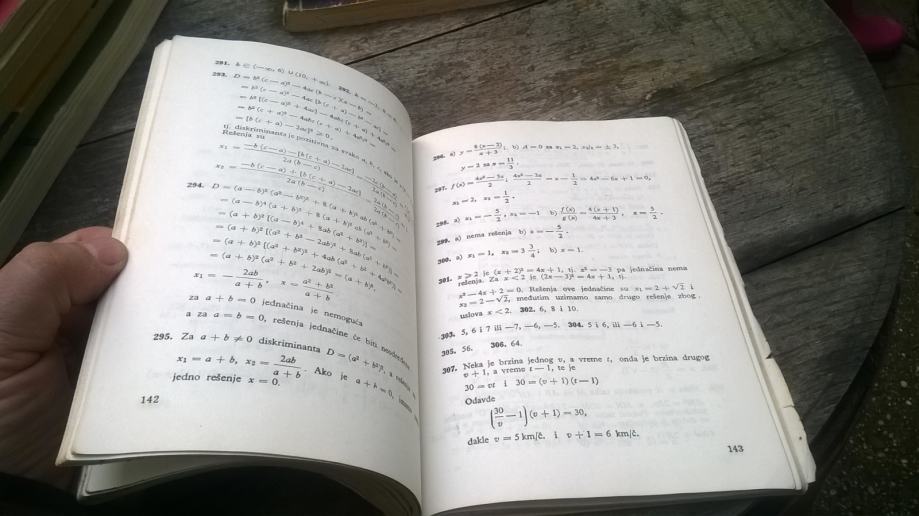 291. b ∈ (—∞, 6) ∪ (10, +∞). 292.
293. D = b² (c — a)² — 4ac (b — c)(a — b) =
= b² (c — a)² — 4ac [b (c + a) — b² — ac] =
= b² [(c — a)² + 4ac] — 4abc (c + a) + 4a²c² =
= b² (c + a)² — 4abc (c + a) + 4a²c² =
= [b (c + a) — 2ac]² ≥ 0,
tj. diskriminanta je pozitivna za svako a, b, c,
Rešenja su
x₁ = —b (c — a) — [b (c + a) — 2ac] / 2a (b — c)
x₂ = —b (c — a) + [b (c + a) — 2ac] / 2a (b — c)
294. D = (a — b)⁴ (a² — b²)² + 8 (a + b)² ab (a² + b²) =
= (a — b)⁴ (a + b)² + 8 (a + b)² ab (a² + b²) =
= (a + b)² [(a — b)⁴ + 8ab (a² + b²)] =
= (a + b)² [(a² + b² — 2ab)² + 8ab (a² + b²)] =
= (a + b)² [(a² + b²)² + 4ab (a² + b²) + 4a²b²] =
= (a + b)² (a² + b² + 2ab)² = (a + b)⁶,
x₁ = — 2ab / a + b, x = a² + b² / a + b
za a + b = 0 jednačina je nemoguća
a za a = b = 0, rešenja jednačine će biti
295. Za a + b ≠ 0 diskriminanta D = (a² + b²)², a rešenja
x₁ = a + b, x₂ = 2ab / a + b. Ako je a + b = 0, imamo
jedno rešenje x = 0.
142
296. a) y = 8 (x — 2) / x + 3; b) A = 0 za x₁ = 2, x₂/₃ = ± 3,
y = 2 za x = 11/3.
297. f (x) = 4x² — 3x / 2; 4x² — 3x / 2 = x — 1/2 ⇒ 4x² — 5x + 1 = 0,
298. a) x₁ = — 5/2, x₂ = —1 b) f(x) / g(x) = 4 (x + 1) / 4x + 3, x = 5/2.
299. a) nema rešenja b) x = — 5/2.
300. a) x₁ = 1, x₂ = 3 3/4; b) x = 1.
301. x ≥ 2 je (x + 2)² = 4x + 1, tj. x² = —3 pa jednačina nema
rešenja. Za x < 2 je (2x — 3)² = 4x + 1, tj.
x² — 4x + 2 = 0. Rešenja ove jednačine su x₁ = 2 + √2 i
x₂ = 2 — √2, međutim uzimamo samo drugo rešenje zbog
uslova x < 2. 302. 6, 8 i 10.
303. 5, 6 i 7 ili —7, —6, —5. 304. 5 i 6, ili —6 i —5.
305. 56. 306. 64.
307. Neka je brzina jednog v, a vreme t, onda je brzina drugog
v + 1, a vreme t — 1, te je
30 = vt i 30 = (v + 1) (t — 1)
Odavde
(30/v — 1) (v + 1) = 30,
dakle v = 5 km/č. i v + 1 = 6 km/č.
143